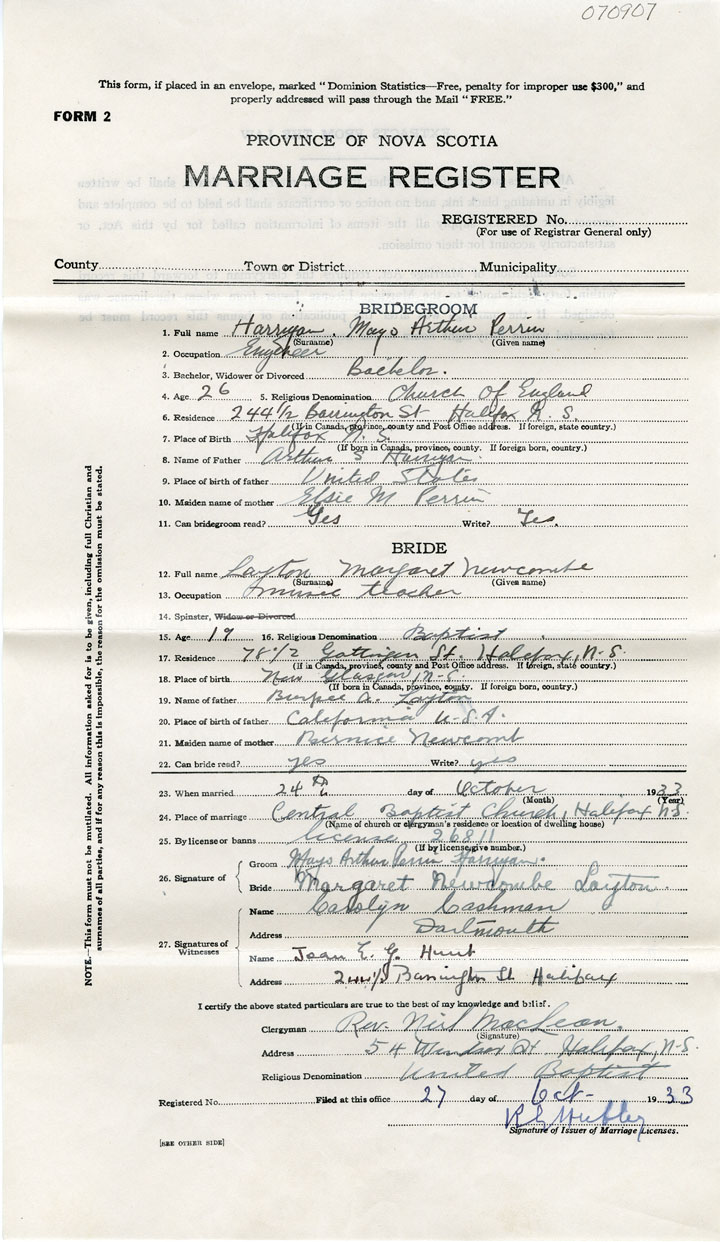 070907
This form, if placed in an envelope, marked "Dominion Statistics—Free, penalty for improper use $300," and
properly addressed will pass through the Mail "FREE."
FORM 2
PROVINCE OF NOVA SCOTIA
MARRIAGE REGISTER
REGISTERED No.
(For use of Registrar General only)
County Town or District Municipality
BRIDEGROOM
1. Full name Harrigan, Mayo Arthur Perrin
(Surname) (Given name)
2. Occupation Engineer
3. Bachelor, Widower or Divorced Bachelor.
4. Age 26 5. Religious Denomination Church Of England
6. Residence 244 1/2 Barrington St Halifax N. S.
(If in Canada, province, county and Post Office address. If foreign, state country.)
7. Place of Birth Halifax N. S.
(If born in Canada, province, county. If foreign born, country.)
8. Name of Father Arthur S Harrigan
9. Place of birth of father United States
10. Maiden name of mother Elsie M Perrin
11. Can bridegroom read? Yes Write? Yes.
BRIDE
12. Full name Layton Margaret Newcombe
(Surname) (Given name)
13. Occupation music teacher
14. Spinster, Widow or Divorced
15. Age 19 16. Religious Denomination Baptist
17. Residence 78 1/2 Gottingen St. Halifax, N.S.
(If in Canada, province, county and Post Office address. If foreign, state country.)
18. Place of birth New Glasgow, N.S.
(If born in Canada, province, county. If foreign born, country.)
19. Name of father Burpee A. Layton
20. Place of birth of father California U.S.A.
21. Maiden name of mother Bernice Newcomb
22. Can bride read? yes Write? yes
23. When married 24th day of October 1933
(Month) (Year)
24. Place of marriage Central Baptist Church, Halifax N.S.
(Name of church or clergyman's residence or location of dwelling house)
25. By license or banns license 26811
(If by license, give number.)
26. Signature of
Groom Mayo Arthur Perrin Harrigan.
Bride Margaret Newcombe Layton
27. Signatures of Witnesses
Name Carolyn Cashman
Address Dartmouth
Name Joan E. G. Hunt
Address 244 1/2 Barrington St. Halifax
I certify the above stated particulars are true to the best of my knowledge and belief.
Clergyman Rev. Neil MacLean.
(Signature)
Address 54 Windsor St Halifax, N.S.
Religious Denomination United Baptist
Registered No. Filed at this office 27 day of Oct- 1933
Signature of Issuer of Marriage Licenses.
[SEE OTHER SIDE]
NOTE.—This form must not be mutilated. All information asked for is to be given, including full Christian and
surnames of all parties, and if for any reason this is impossible, the reason for the omission must be stated.